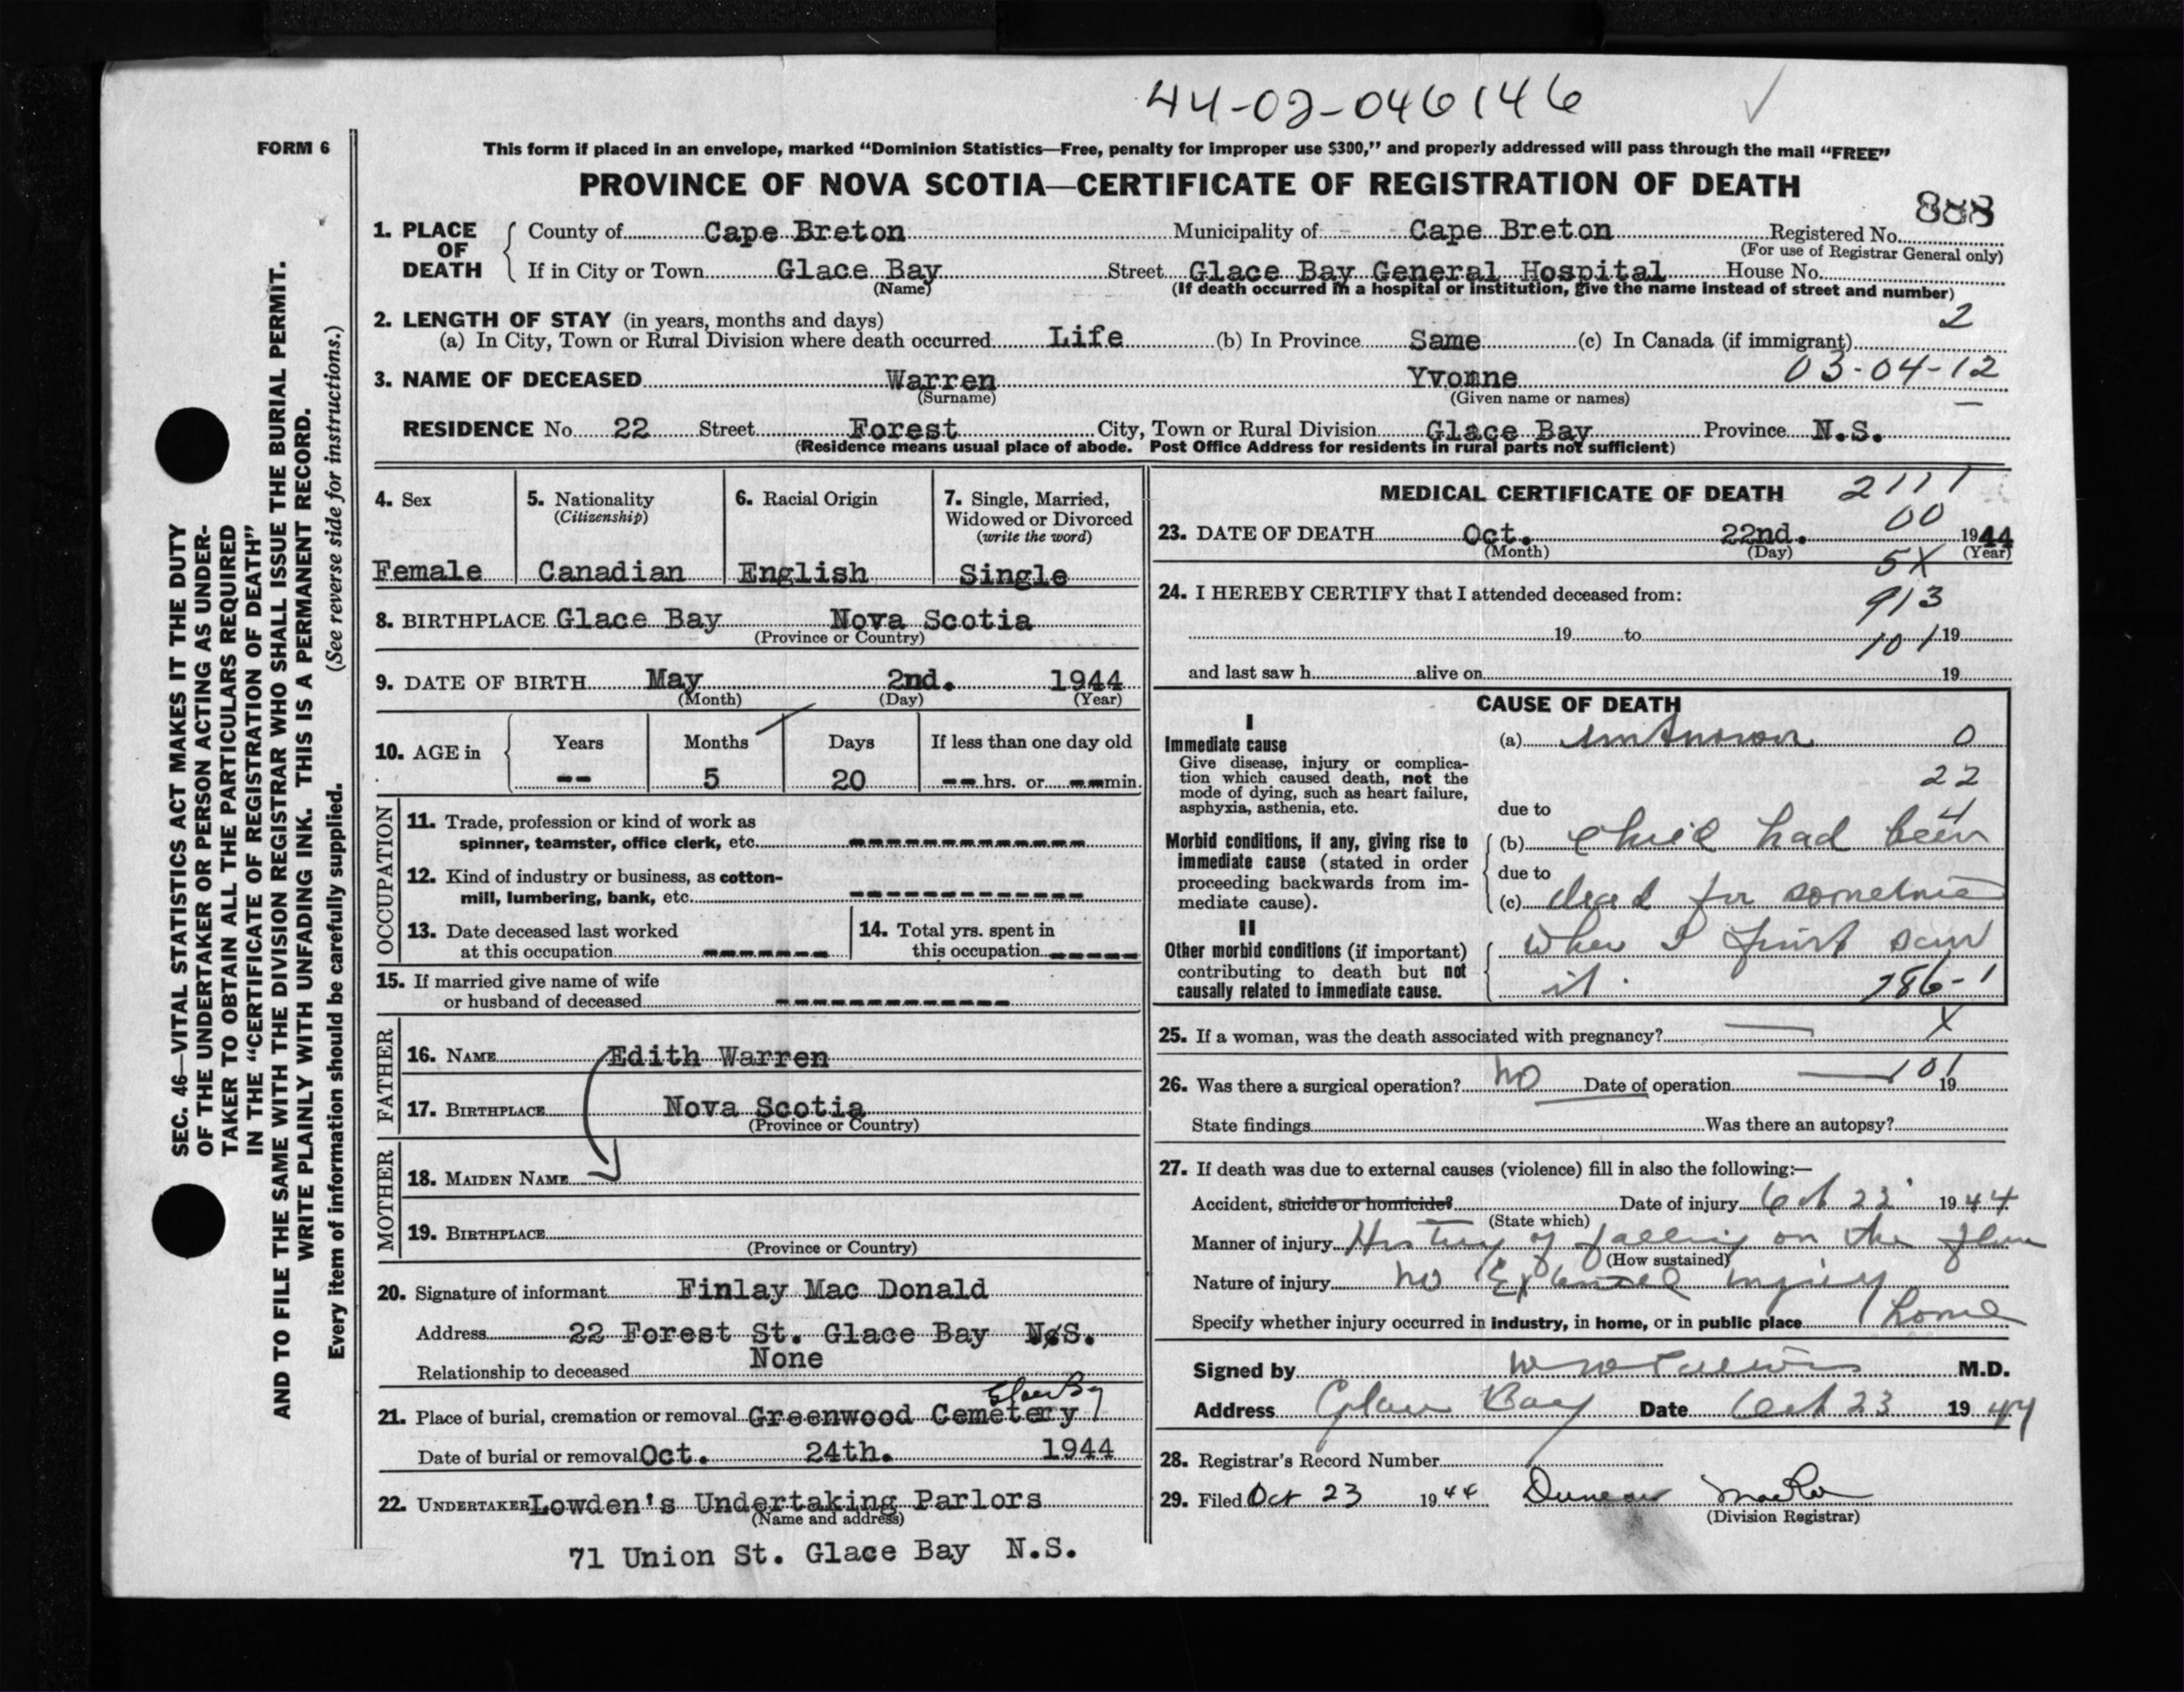 44-02-046146
FORM 6
This form if placed in an envelope, marked “Dominion Statistics—Free, penalty for improper use $300,” and properly addressed will pass through the mail “FREE”
PROVINCE OF NOVA SCOTIA—CERTIFICATE OF REGISTRATION OF DEATH
888
1. PLACE OF DEATH County of Cape Breton Municipality of Cape Breton Registered No.
(For use of Registrar General only)
If in City or Town Glace Bay Street Glace Bay General Hospital House No.
(Name) (If death occurred in a hospital or institution, give the name instead of street and number)
2. LENGTH OF STAY (in years, months and days) 2
(a) In City, Town or Rural Division where death occurred Life (b) In Province Same (c) In Canada (if immigrant)
3. NAME OF DECEASED Warren Yvonne 03-04-12
(Surname) (Given name or names)
RESIDENCE No 22 Street Forest City, Town or Rural Division Glace Bay Province N.S.
(Residence means usual place of abode. Post Office Address for residents in rural parts not sufficient)
4. Sex 5. Nationality (Citizenship) 6. Racial Origin 7. Single, Married, Widowed or Divorced (write the word)
Female Canadian English Single
8. BIRTHPLACE Glace Bay Nova Scotia
(Province or Country)
9. DATE OF BIRTH May 2nd. 1944
(Month) (Day) (Year)
10. AGE in Years Months Days If less than one day old
-- 5 20 -- hrs. or -- min.
OCCUPATION
11. Trade, profession or kind of work as
spinner, teamster, office clerk, etc. ------------
12. Kind of industry or business, as cotton-
mill, lumbering, bank, etc. ------------
13. Date deceased last worked
at this occupation -------
14. Total yrs. spent in
this occupation -----
15. If married give name of wife
or husband of deceased ------------
FATHER
16. NAME Edith Warren
17. BIRTHPLACE Nova Scotia
(Province or Country)
MOTHER
18. MAIDEN NAME
19. BIRTHPLACE
(Province or Country)
20. Signature of informant Finlay Mac Donald
Address 22 Forest St. Glace Bay N.S.
Relationship to deceased None
Glace Bay
21. Place of burial, cremation or removal Greenwood Cemetery
Date of burial or removal Oct. 24th. 1944
22. UNDERTAKER Lowden's Undertaking Parlors
(Name and address)
71 Union St. Glace Bay N.S.
MEDICAL CERTIFICATE OF DEATH 2111
00
23. DATE OF DEATH Oct. 22nd. 1944
(Month) (Day) (Year)
5X
24. I HEREBY CERTIFY that I attended deceased from:
913
19 to 19
101
and last saw h alive on 19
CAUSE OF DEATH
I
Immediate cause (a) unknown 0
Give disease, injury or complica-
tion which caused death, not the
mode of dying, such as heart failure,
asphyxia, asthenia, etc.
22
due to 4
Morbid conditions, if any, giving rise to
immediate cause (stated in order
proceeding backwards from im-
mediate cause).
(b) child had been
due to
(c) dead for sometime
II
Other morbid conditions (if important)
contributing to death but not
causally related to immediate cause.
when I first saw
it. 186-1
25. If a woman, was the death associated with pregnancy? — X
26. Was there a surgical operation? No Date of operation — 101 19
State findings Was there an autopsy?
27. If death was due to external causes (violence) fill in also the following:—
Accident, suicide or homicide? Date of injury Oct 22 1944
(State which)
Manner of injury History of falling on the floor
(How sustained)
Nature of injury No External injury
Specify whether injury occurred in industry, in home, or in public place home
Signed by M.D.
Address Glace Bay Date Oct 23 1944
28. Registrar's Record Number
29. Filed Oct 23 1944 Duncan MacRae
(Division Registrar)
SEC. 46—VITAL STATISTICS ACT MAKES IT THE DUTY
OF THE UNDERTAKER OR PERSON ACTING AS UNDER-
TAKER TO OBTAIN ALL THE PARTICULARS REQUIRED
IN THE “CERTIFICATE OF REGISTRATION OF DEATH”
AND TO FILE THE SAME WITH THE DIVISION REGISTRAR WHO SHALL ISSUE THE BURIAL PERMIT.
WRITE PLAINLY WITH UNFADING INK. THIS IS A PERMANENT RECORD.
Every item of information should be carefully supplied. (See reverse side for instructions.)